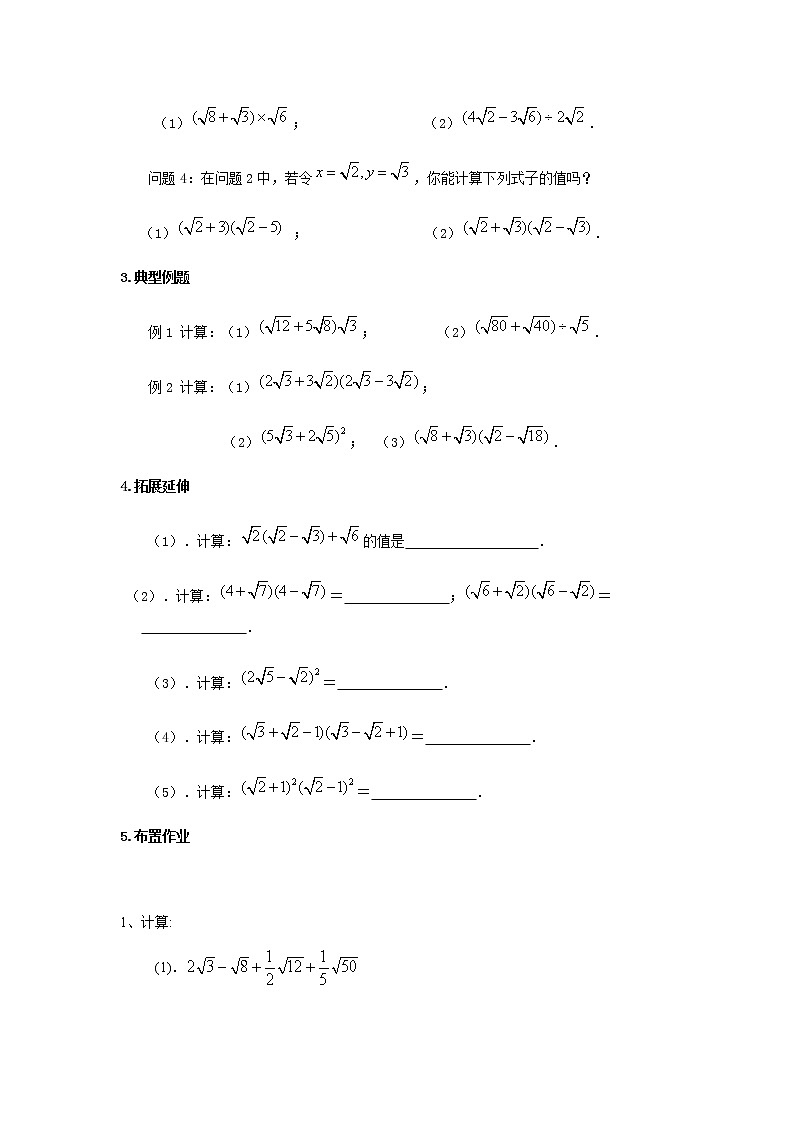 （1）(√8+√3)×√6；（2）(4√2−3√6)÷2√2．
问题4：在问题2中，若令x=√2,y=√3，你能计算下列式子的值吗？
（1）(√2+3)(√2−5)；（2）(√2+√3)(√2−√3)．
3.典型例题
例1 计算：（1）(√12+5√8)√3；（2）(√80+√40)÷√5．
例2 计算：（1）(2√3+3√2)(2√3−3√2)；
（2）(5√3+2√5)²；（3）(√8+√3)(√2−√18)．
4.拓展延伸
（1）．计算：√2(√2−√3)+√6的值是___________________．
（2）．计算：(4+√7)(4−√7)＝_______________；(√6+√2)(√6−√2)＝
_______________．
（3）．计算：(2√5−√2)²＝_______________．
（4）．计算：(√3+√2−1)(√3−√2+1)＝_______________．
（5）．计算：(√2+1)²(√2−1)²＝_______________．
5.布置作业
1、计算:
(1)．2√3−√8+1/2√12+1/5√50